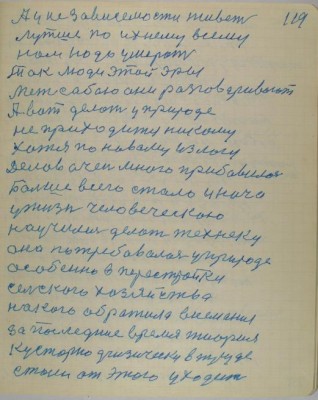 119
А и не зависемости живет
лутше по ихнему всему
нам надо умерать
так люди этой эры
меж сабаю ани разговаривают
А вот делат у природе
не приходитц никому
хотя по новаму
Делов очен много прибавилас
Болше всего стало иначо
у жизн человеческаю
научилис делат технеку
она потребавалас у природе
особенно в перестройки
селского хозяйства
на кого обратила внемения
за последние время теория
Кусторно физически в труде
стали от этого уходит